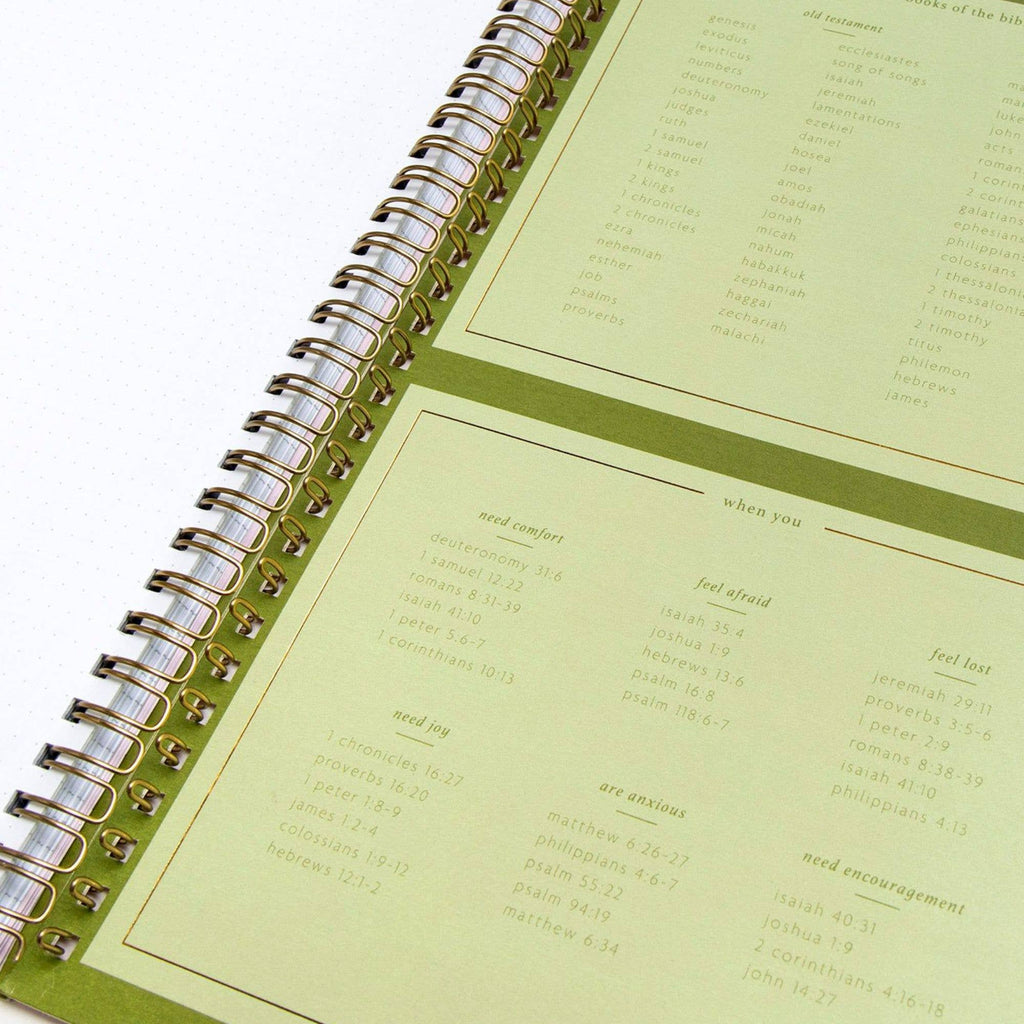 books of the bib
old testament
genesis
exodus
leviticus
numbers
deuteronomy
joshua
judges
ruth
1 samuel
2 samuel
1 kings
2 kings
1 chronicles
2 chronicles
ezra
nehemiah
esther
job
psalms
proverbs
ecclesiastes
song of songs
isaiah
jeremiah
lamentations
ezekiel
daniel
hosea
joel
amos
obadiah
jonah
micah
nahum
habakkuk
zephaniah
haggai
zechariah
malachi
ma
mar
luke
john
acts
roman
1 corin
2 corint
galatians
ephesians
philippians
colossians
1 thessaloni
2 thessalonia
1 timothy
2 timothy
titus
philemon
hebrews
james
when you
need comfort
deuteronomy 31:6
1 samuel 12:22
romans 8:31-39
isaiah 41:10
1 peter 5:6-7
1 corinthians 10:13
feel afraid
isaiah 35:4
joshua 1:9
hebrews 13:6
psalm 16:8
psalm 118:6-7
feel lost
jeremiah 29:11
proverbs 3:5-6
1 peter 2:9
romans 8:38-39
isaiah 41:10
philippians 4:13
need joy
1 chronicles 16:27
proverbs 16:20
1 peter 1:8-9
james 1:2-4
colossians 1:9-12
hebrews 12:1-2
are anxious
matthew 6:26-27
philippians 4:6-7
psalm 55:22
psalm 94:19
matthew 6:34
need encouragement
isaiah 40:31
joshua 1:9
2 corinthians 4:16-18
john 14:27